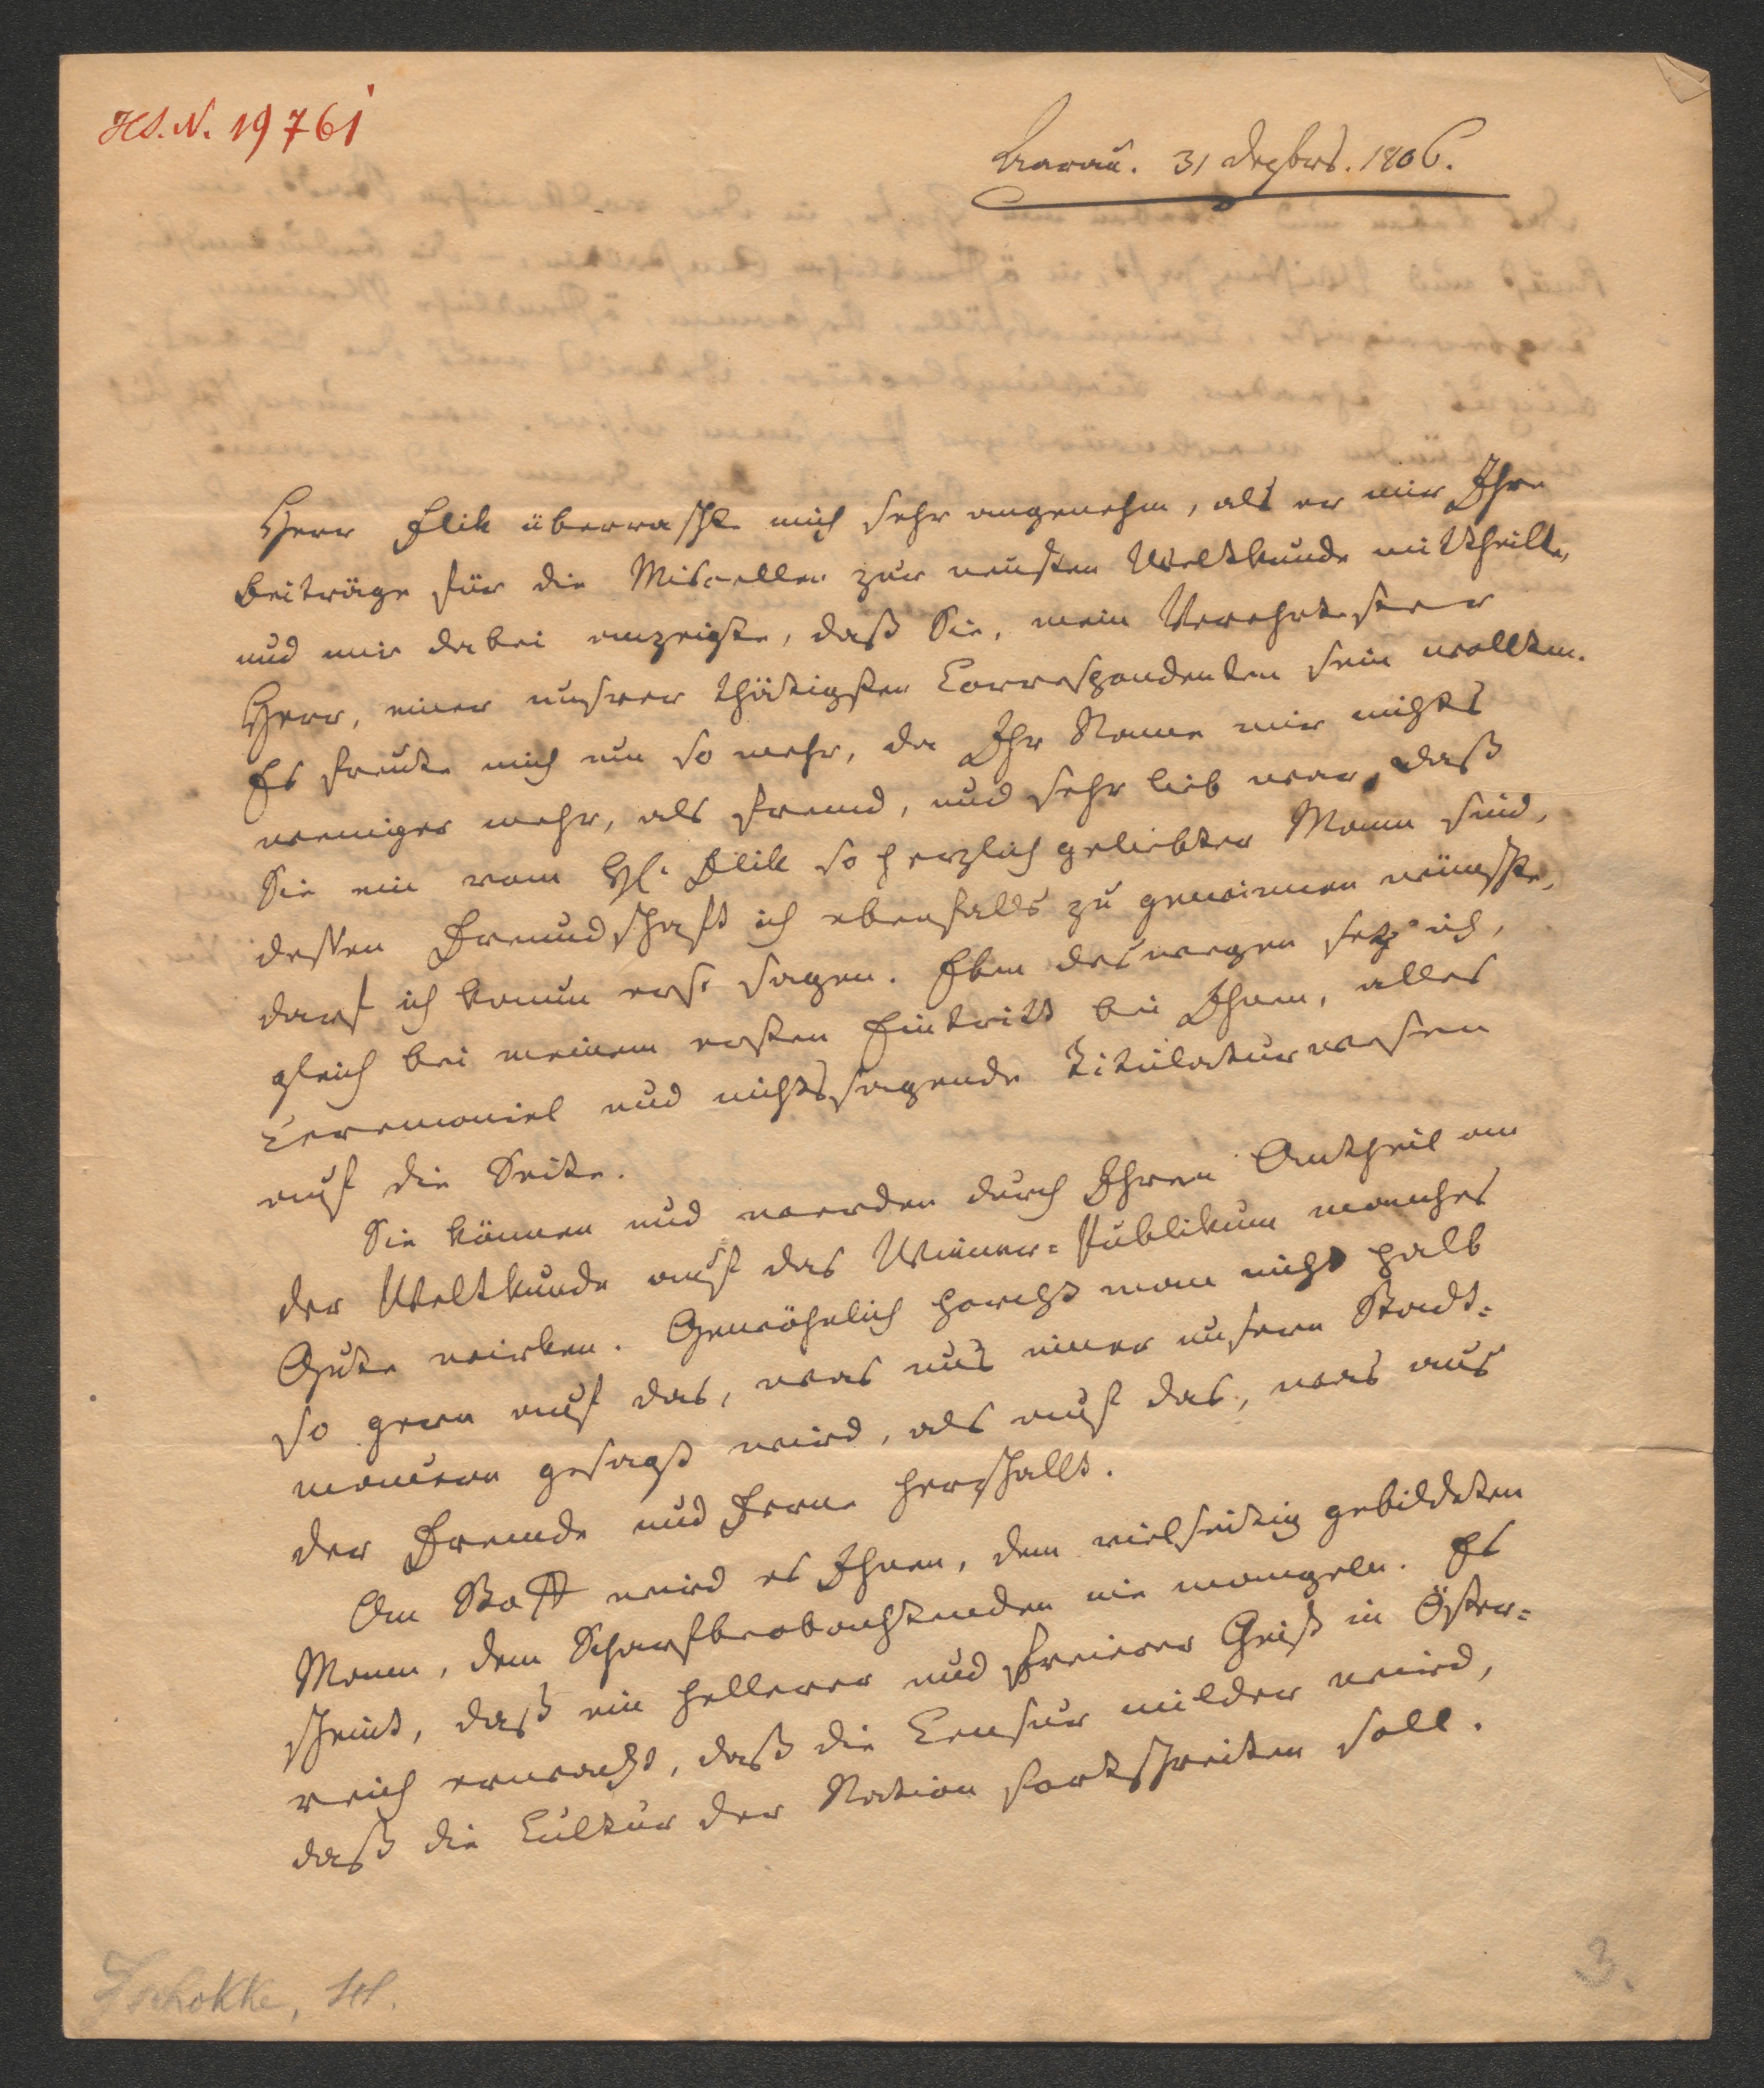 H.I.N. 19761
Aarau. 31 Dezbr. 1806.
Herr Flik überraschte mich sehr angenehm, als er mir Ihre
Beiträge für die Miscellen zur neusten Weltkunde mittheilte,
und mir dabei anzeigte, daß Sie, mein Verehrtester
Herr, einer unsrer thätigsten Correspondenten sein wollten.
Es freute mich um so mehr, da Ihr Name mir nichts
weniger mehr, als fremd, und sehr lieb war, daß
Sie ein vom H. Flik so herzlich geliebter Mann sind,
dessen Freundschaft ich ebenfalls zu gewinnen wünschte,
darf ich kaum erst sagen. Eben deswegen setz' ich,
gleich bei meinem ersten Eintritt bei Ihnen, alles
Ceremoniel und nichtssagende Titulaturwesen
auf die Seite.
Sie können und werden durch Ihren Antheil an
der Weltkunde auf das Wiener-Publikum manches
Gute wirken. Gewöhnlich horcht man nicht halb
so gern auf das, was uns einer unsern Stadt-
mauern gesagt wird, als auf das, was aus
der Fremde und Ferne herschallt.
An Stoff wird es Ihnen, dem vielseitig gebildeten
Mann, dem Scharfbeobachtenden nie mangeln. Es
scheint, daß ein hellerer und freierer Geist in Öster-
reich erwacht, daß die Censur milder wird,
daß die Cultur der Nation fortschreiten soll.
Zschokke, H.
3.